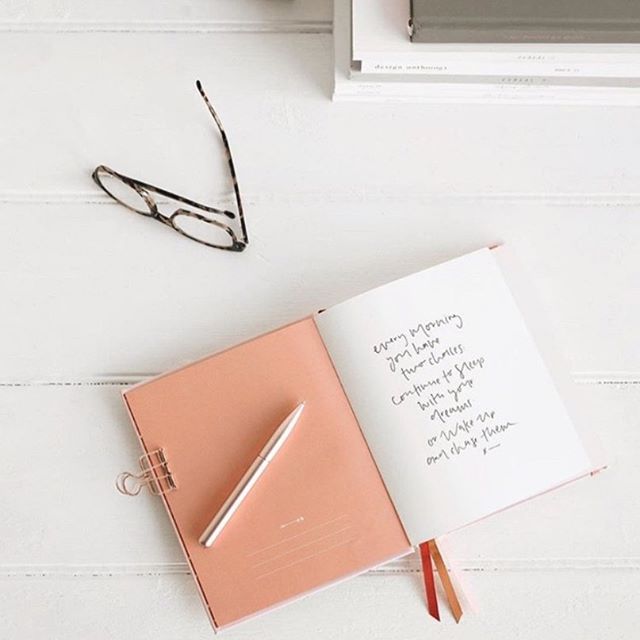 CEREAL
design anthology
CEREAL
every morning
you have
two choices
continue to sleep
with your
dreams
or wake up
and chase them
x—